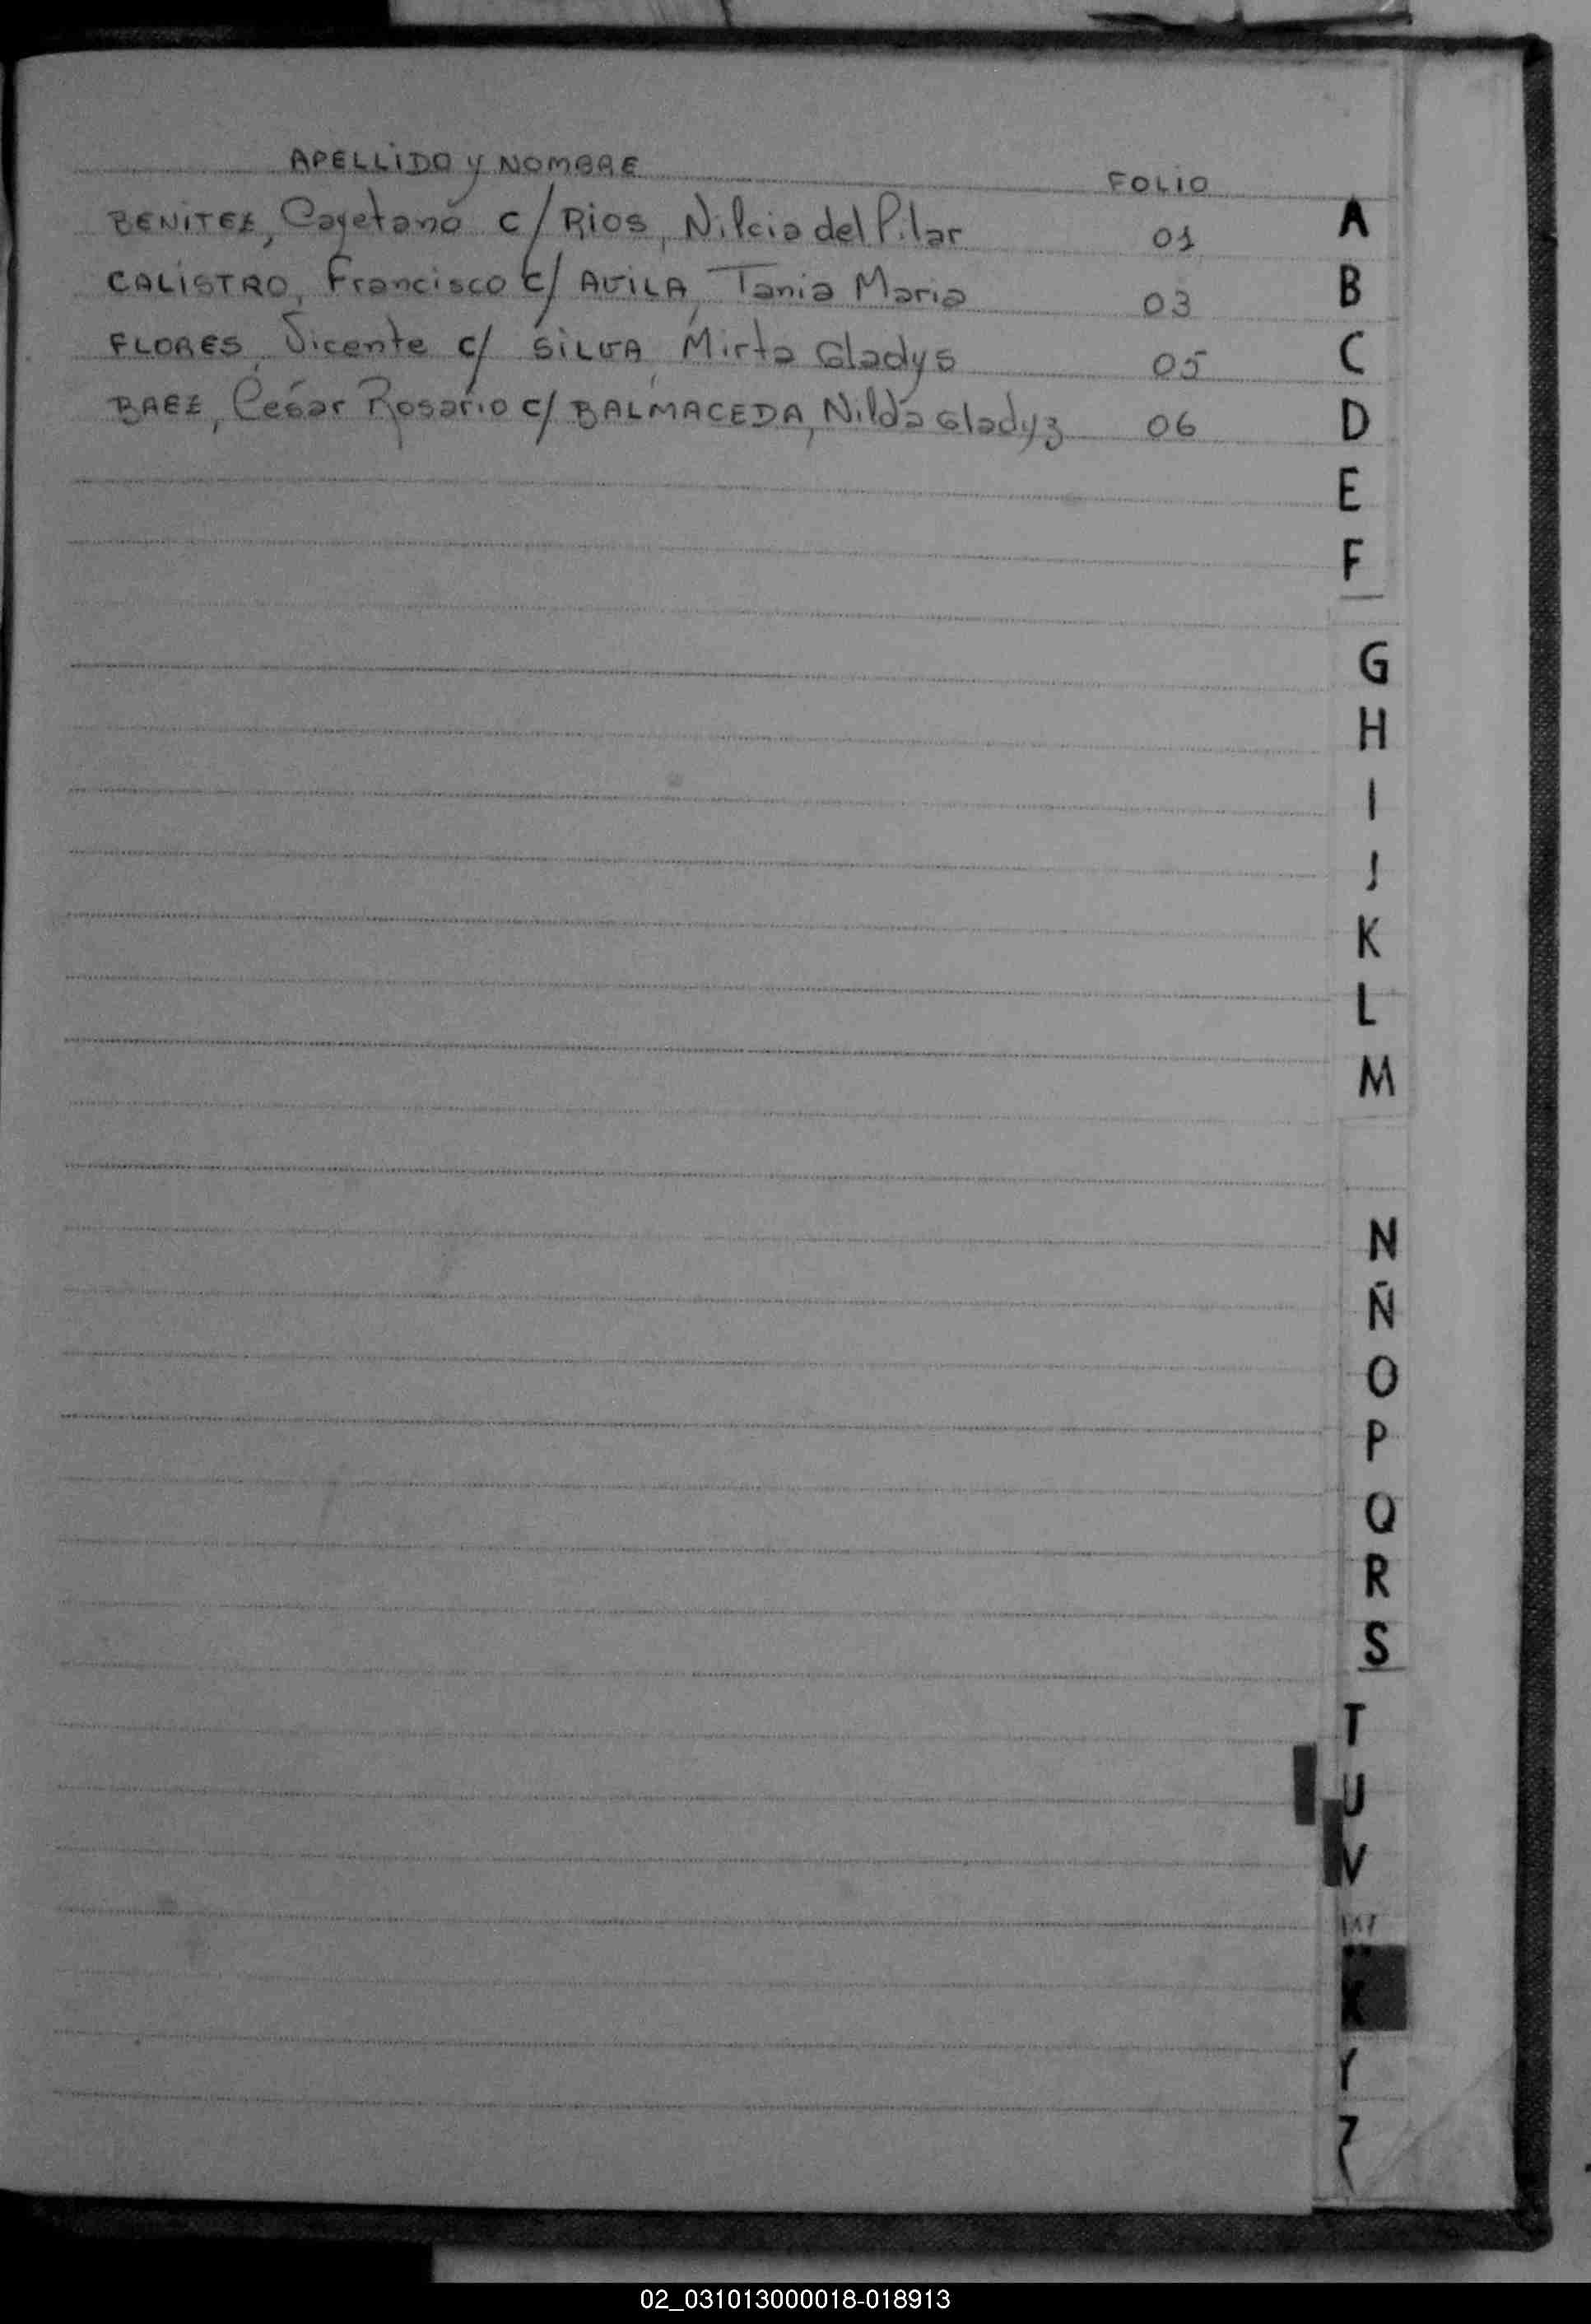 APELLIDO y NOMBRE FOLIO
BENITEZ, Cayetano c/ RIOS, Nilcia del Pilar 01
CALISTRO, Francisco c/ AVILA, Tania Maria 03
FLORES, Vicente c/ SILVA, Mirta Gladys 05
BAEZ, César Rosario c/ BALMACEDA, Nilda Gladyz 06
A
B
C
D
E
F
G
H
I
J
K
L
M
N
Ñ
O
P
Q
R
S
T
U
V
W
X
Y
Z
02_031013000018-018913